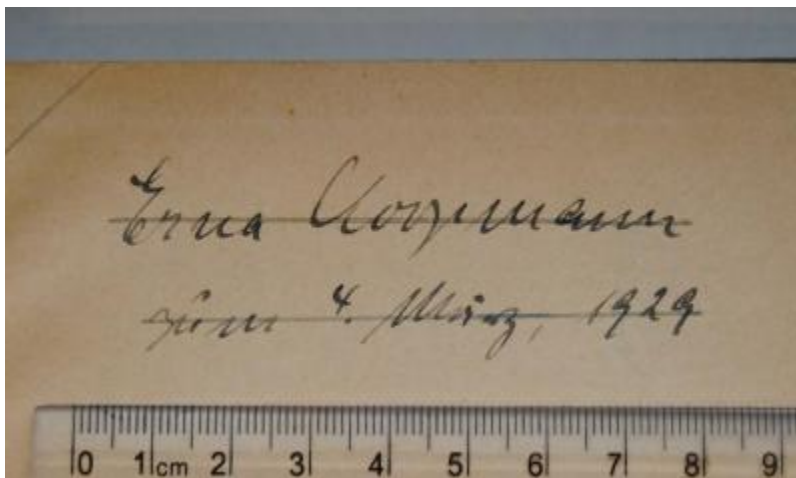 Erna Koopmann
zum 4. März, 1929
0 1 cm 2 3 4 5 6 7 8 9